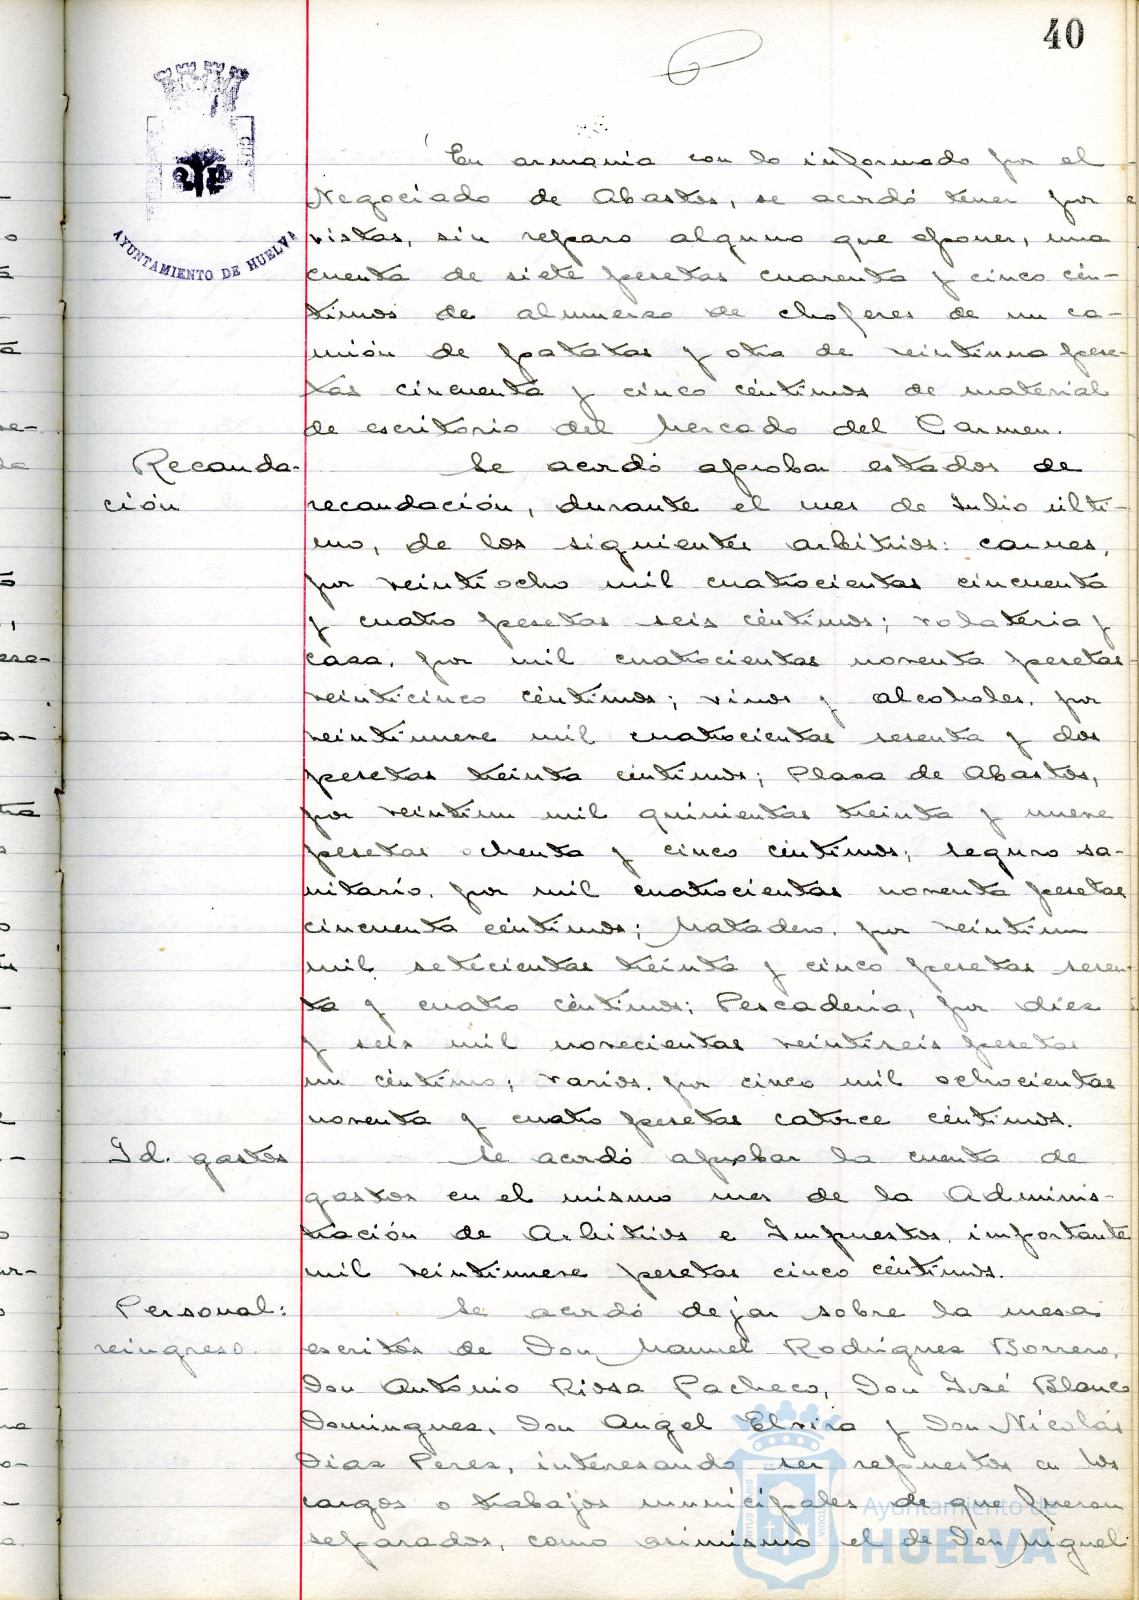 40
AYUNTAMIENTO DE HUELVA
En armonia con lo informado por el
Negociado de Abastos, se acordó tener por
vistas, sin reparo alguno que oponer, una
cuenta de siete pesetas cuarenta y cinco cén-
timos de almuerzo de choferes de un ca-
mión de patatas y otra de veintiuna pese-
tas cincuenta y cinco céntimos de material
de escritorio del Mercado del Carmen.
Recauda-
ción
Se acordó aprobar estados de
recaudación, durante el mes de Julio últi-
mo, de los siguientes arbitrios: carnes,
por veintiocho mil cuatrocientas cincuenta
y cuatro pesetas seis céntimos; volateria y
caza, por mil cuatrocientas noventa pesetas
veinticinco céntimos; vinos y alcoholes, por
veintinueve mil cuatrocientas sesenta y dos
pesetas treinta céntimos; Plaza de Abastos,
por veintiun mil quinientas treinta y nueve
pesetas ochenta y cinco céntimos; seguro sa-
nitario, por mil cuatrocientas noventa pesetas
cincuenta céntimos; Matadero, por veintiun
mil setecientas treinta y cinco pesetas sesen-
ta y cuatro céntimos; Pescadería, por diez
y seis mil novecientas veintiseis pesetas
un céntimo; varios, por cinco mil ochocientas
noventa y cuatro pesetas catorce céntimos.
Id. gastos
Se acordó aprobar la cuenta de
gastos en el mismo mes de la Adminis-
tración de Arbitrios e Impuestos, importante
mil veintinueve pesetas cinco céntimos.
Personal:
reingreso.
Se acordó dejar sobre la mesa
escritos de Don Manuel Rodriguez Borrero,
Don Antonio Riosa Pacheco, Don José Blanco
Dominguez, Don Angel Elvira y Don Nicolás
Diaz Perez, interesando ser repuestos en los
cargos o trabajos municipales de que fueron
separados, como asimismo el de Don Miguel
Ayuntamiento de
HUELVA